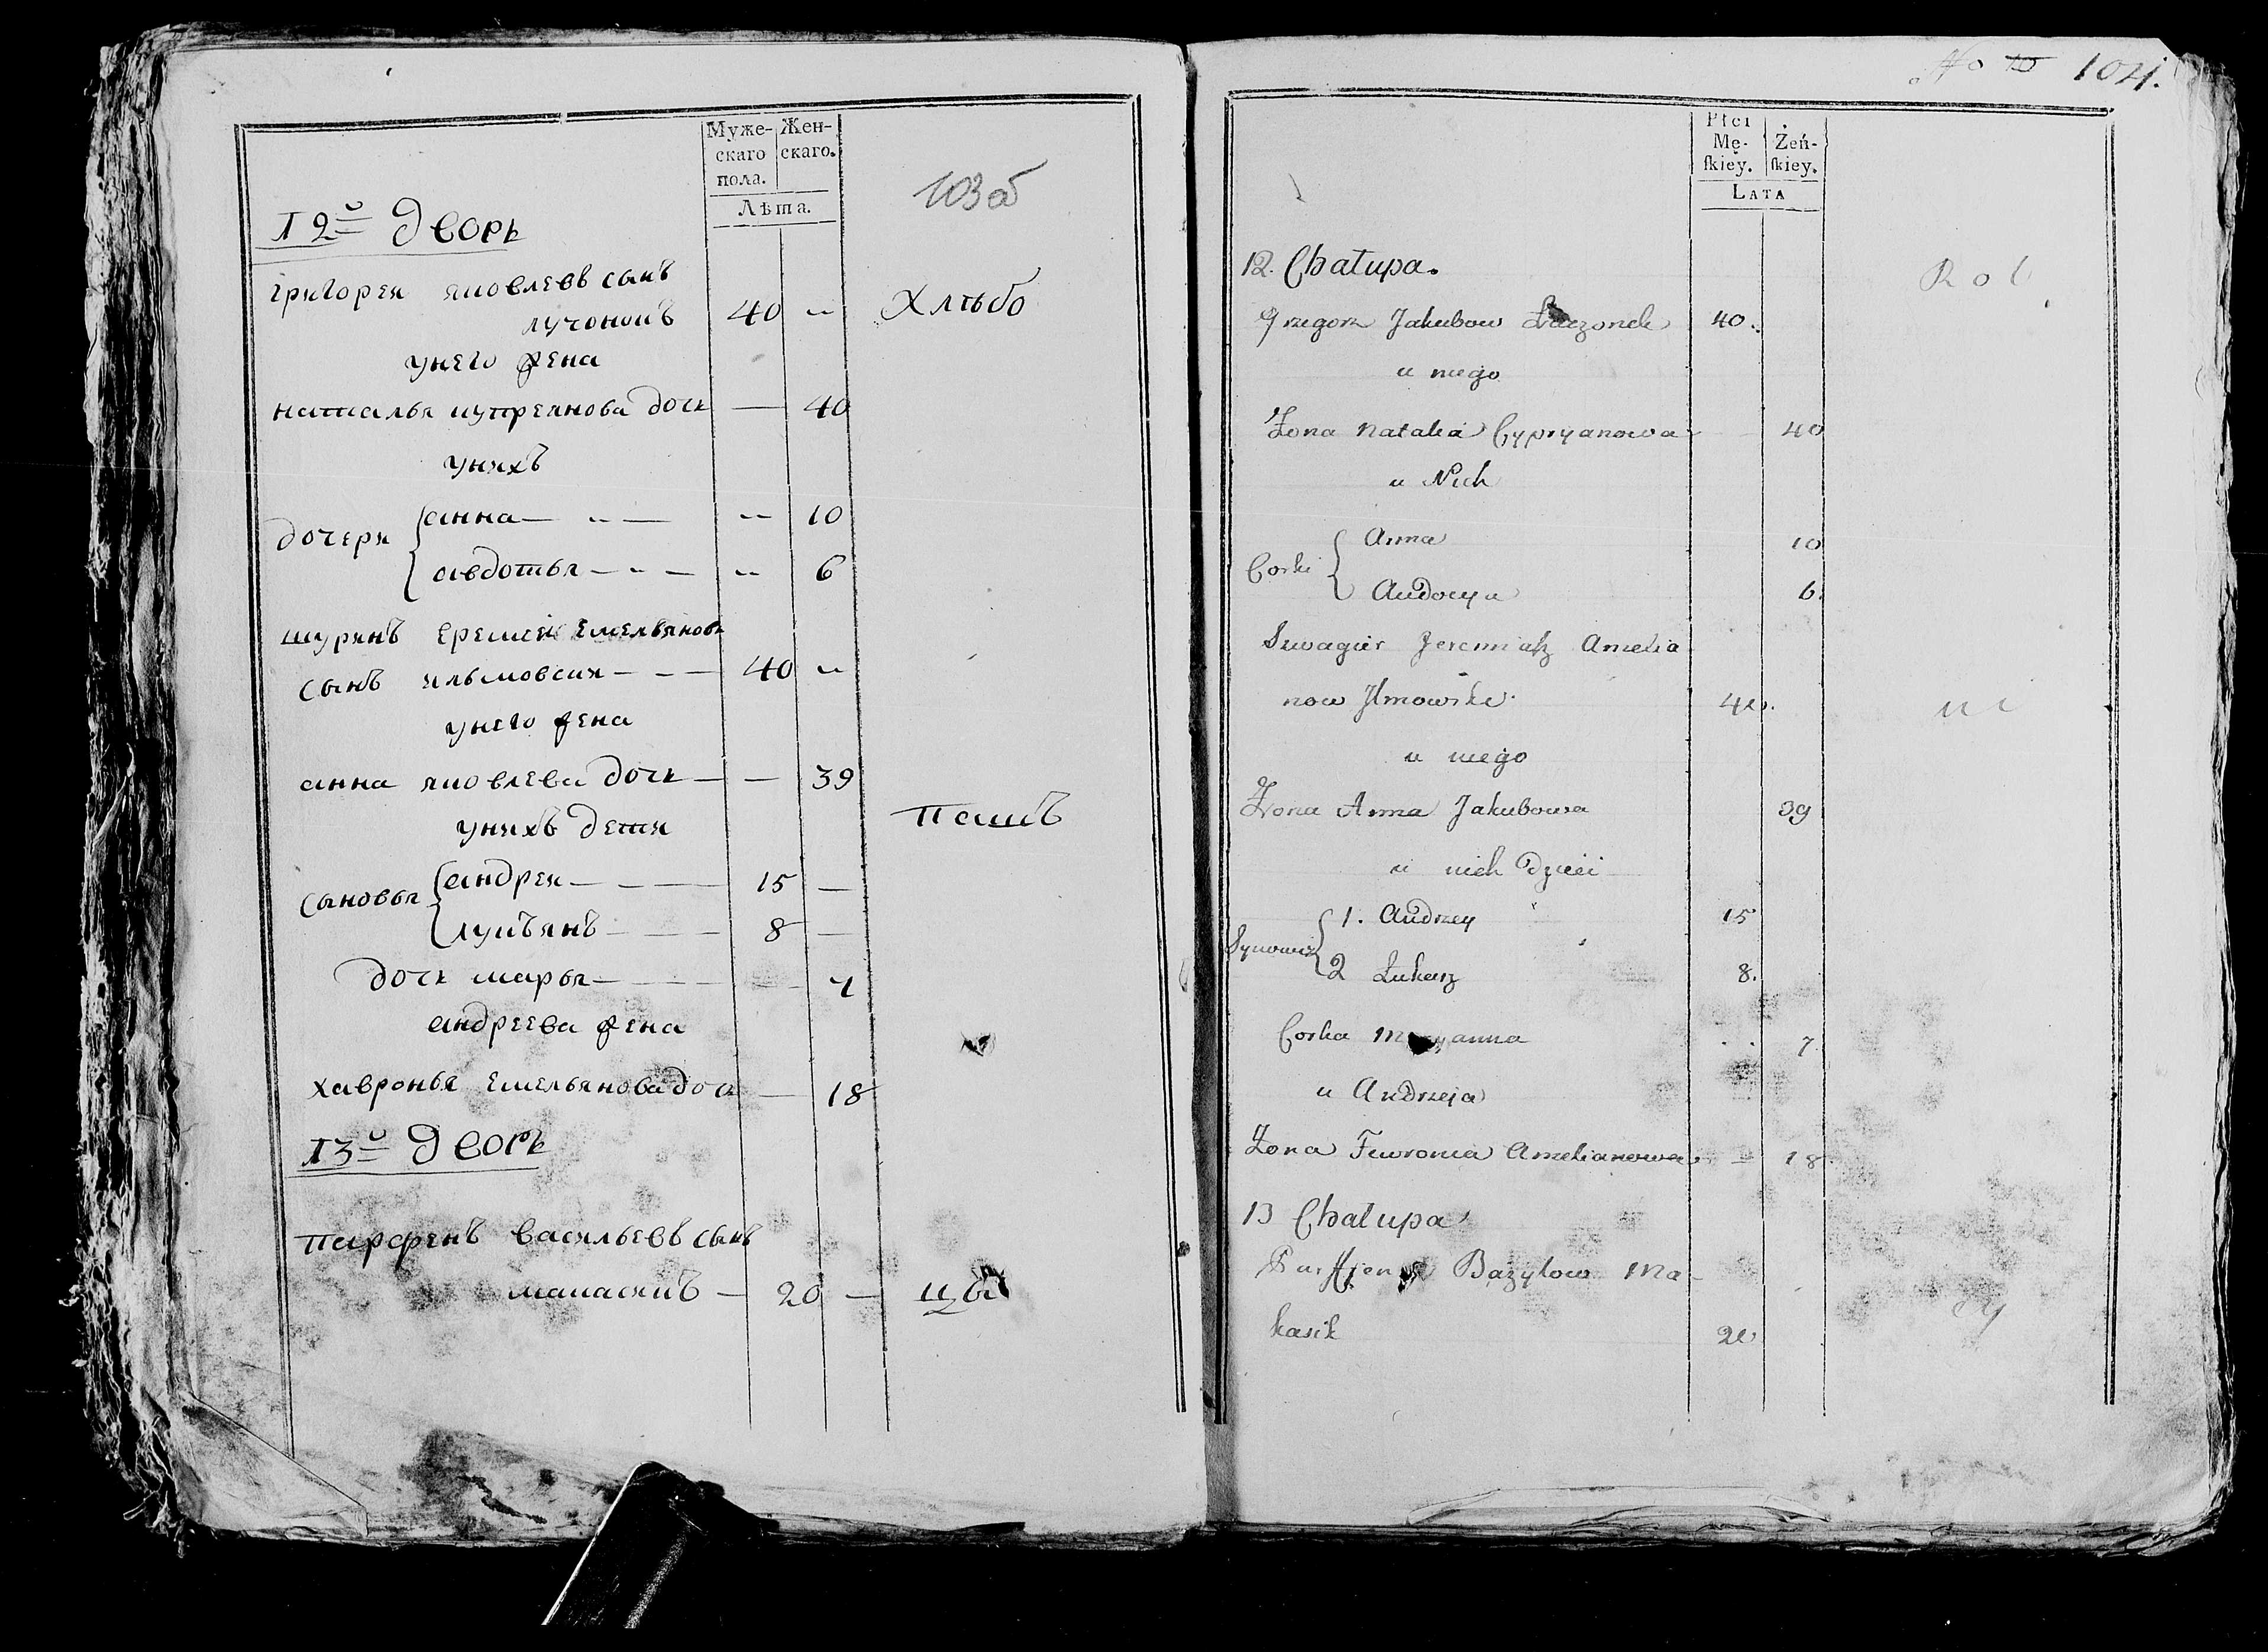 Муже-
скаго
пола.
Жен-
скаго.
Лѣта.
103 об
12й Дворъ
григореи яковлевъ сынъ
лучонокъ 40 „ Хлѣбо
унего жена
наталья купреянова дочь — 40
унихъ
дочери
анна — „ — „ 10
авдотья — „ — „ 6
шуринъ еремеи емельяновъ
сынъ ильмовски — — 40 „
унего жена
анна яковлева дочь — — 39
унихъ дети пашъ
сыновья
андреи — — — 15 —
лукъянъ — — — 8 —
дочь марья — — — — 7
андреева жена
хавронья емельянова доч — 18
13й Дворъ
парфенъ васильевъ сынъ
макасикъ — 20 — цы
No 10 104.
Płci
Mę-
ſkiey.
Żeń-
ſkiey.
LATA
12. Chałupa.
Rol
Grzegorz Jakubow Łuczonek 40.
u niego
Żona Natalia Cypryanowa 40
u Nich
Corki
Anna 10
Audocya 6.
Szwagier Jeremiasz Amelia
now Jlmowski 40. ni
u niego
Żona Anna Jakubowa 39
u nich Dzieci
Synowie
1. Andrzey 15
2 Łukasz 8.
Corka Maryanna 7
u Andrzeja
Żona Fewronia Amelianowa 18
13 Chałupa
Parffien Bazylow Ma-
kasik 20 cy